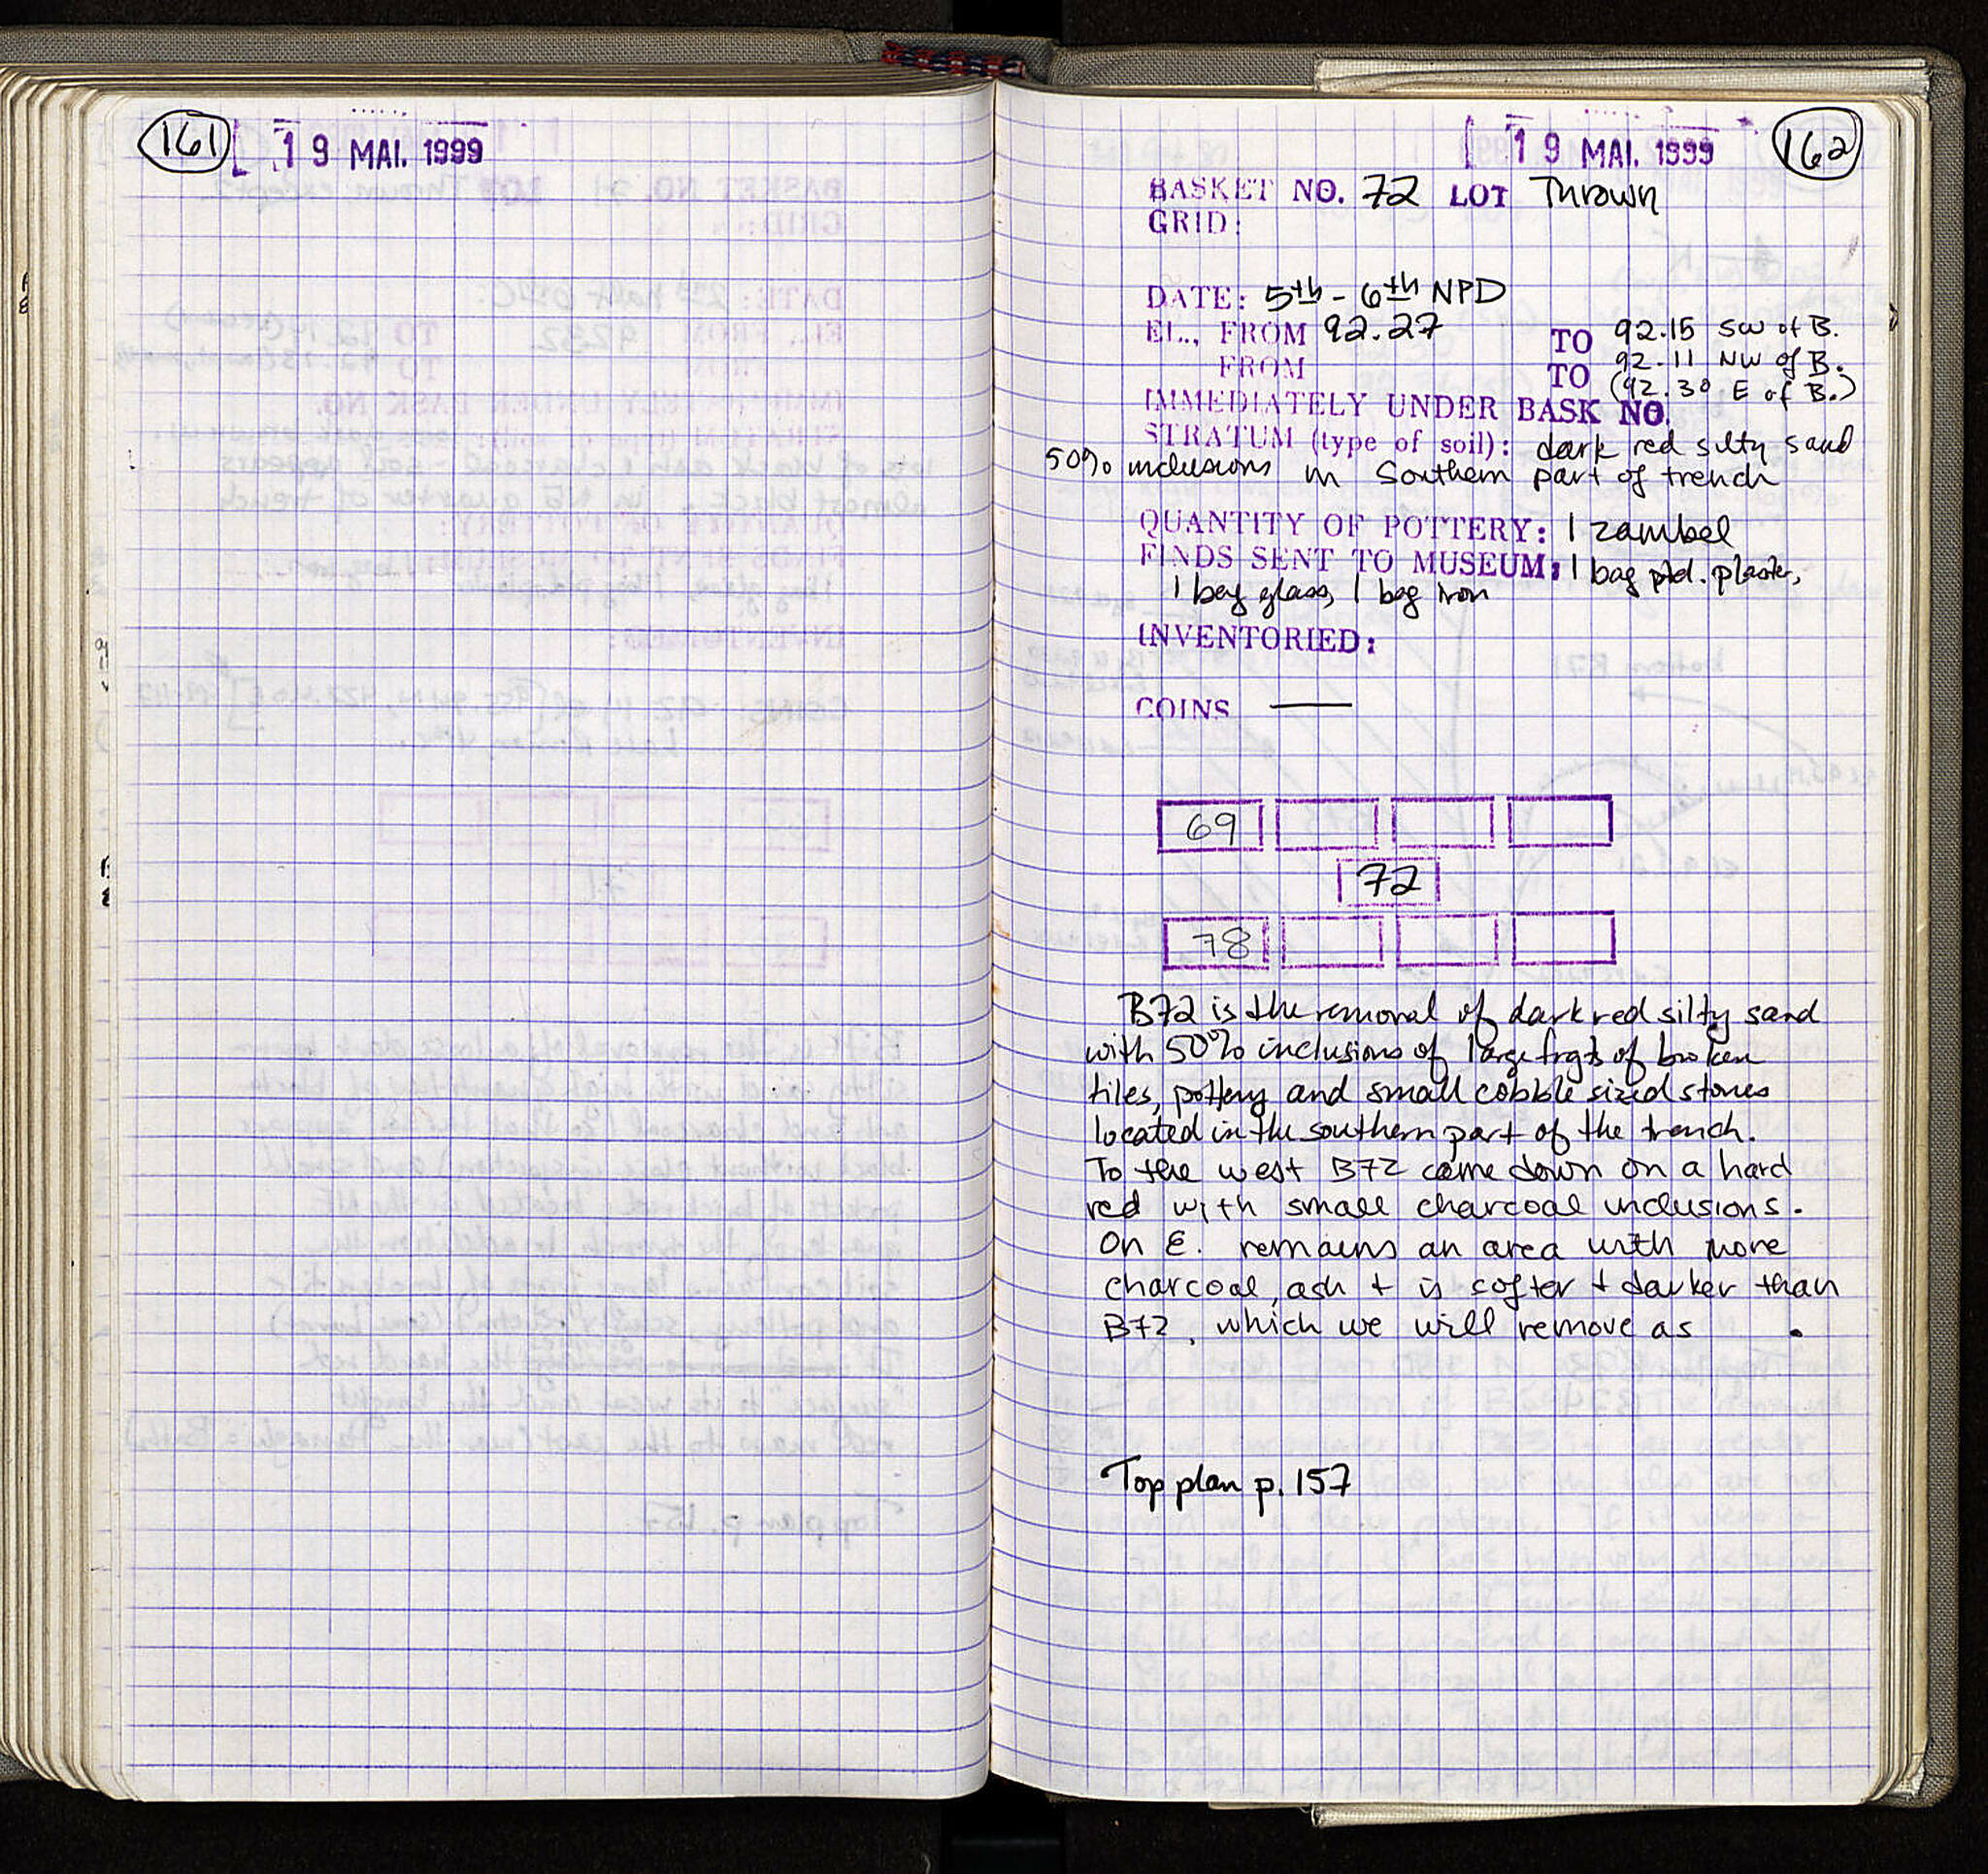 161 19 MAI. 1999
19 MAI. 1999 162
BASKET NO. 72 LOT Thrown
GRID:
DATE: 5th - 6th NPD
EL., FROM 92.27 TO 92.15 SW of B.
FROM TO 92.11 NW of B.
(92.30 E of B.)
IMMEDIATELY UNDER BASK NO.
STRATUM (type of soil): dark red silty sand
50% inclusions in Southern part of trench
QUANTITY OF POTTERY: 1 zambel
FINDS SENT TO MUSEUM: 1 bag ptd. plaster,
1 bag glass, 1 bag iron
INVENTORIED:
COINS —
69
72
78
B72 is the removal of dark red silty sand
with 50% inclusions of large frgts of broken
tiles, pottery and small cobble sized stones
located in the southern part of the trench.
To the west B72 came down on a hard
red with small charcoal inclusions.
On E. remains an area with more
charcoal, ash + is softer + darker than
B72, which we will remove as .
Top plan p. 157